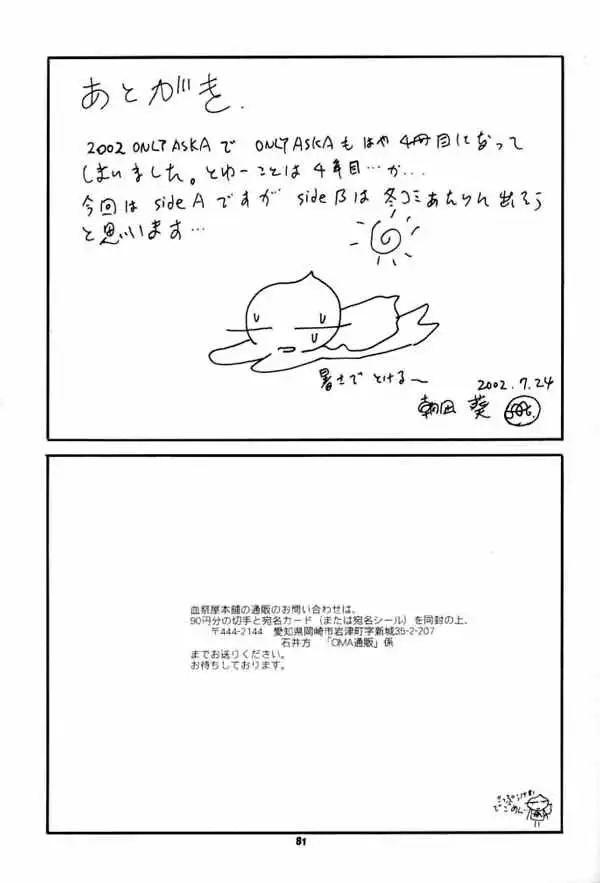 あとがき.
2002 ONLY ASKAで ONLY ASKAもはや4冊目になって
しまいました。とゆーことは4年目…か…
今回は side Aですが side Bは冬コミあたりに出そう
と思います…
暑さでとける〜
2002.7.24
朝凪 葵
血祭屋本舗の通販のお問い合わせは、
90円分の切手と宛名カード（または宛名シール）を同封の上、
〒444-2144 愛知県岡崎市岩津町字新城35-2-207
石井方 「OMA通販」係
までお送りください。
お待ちしております。
でごめん
81